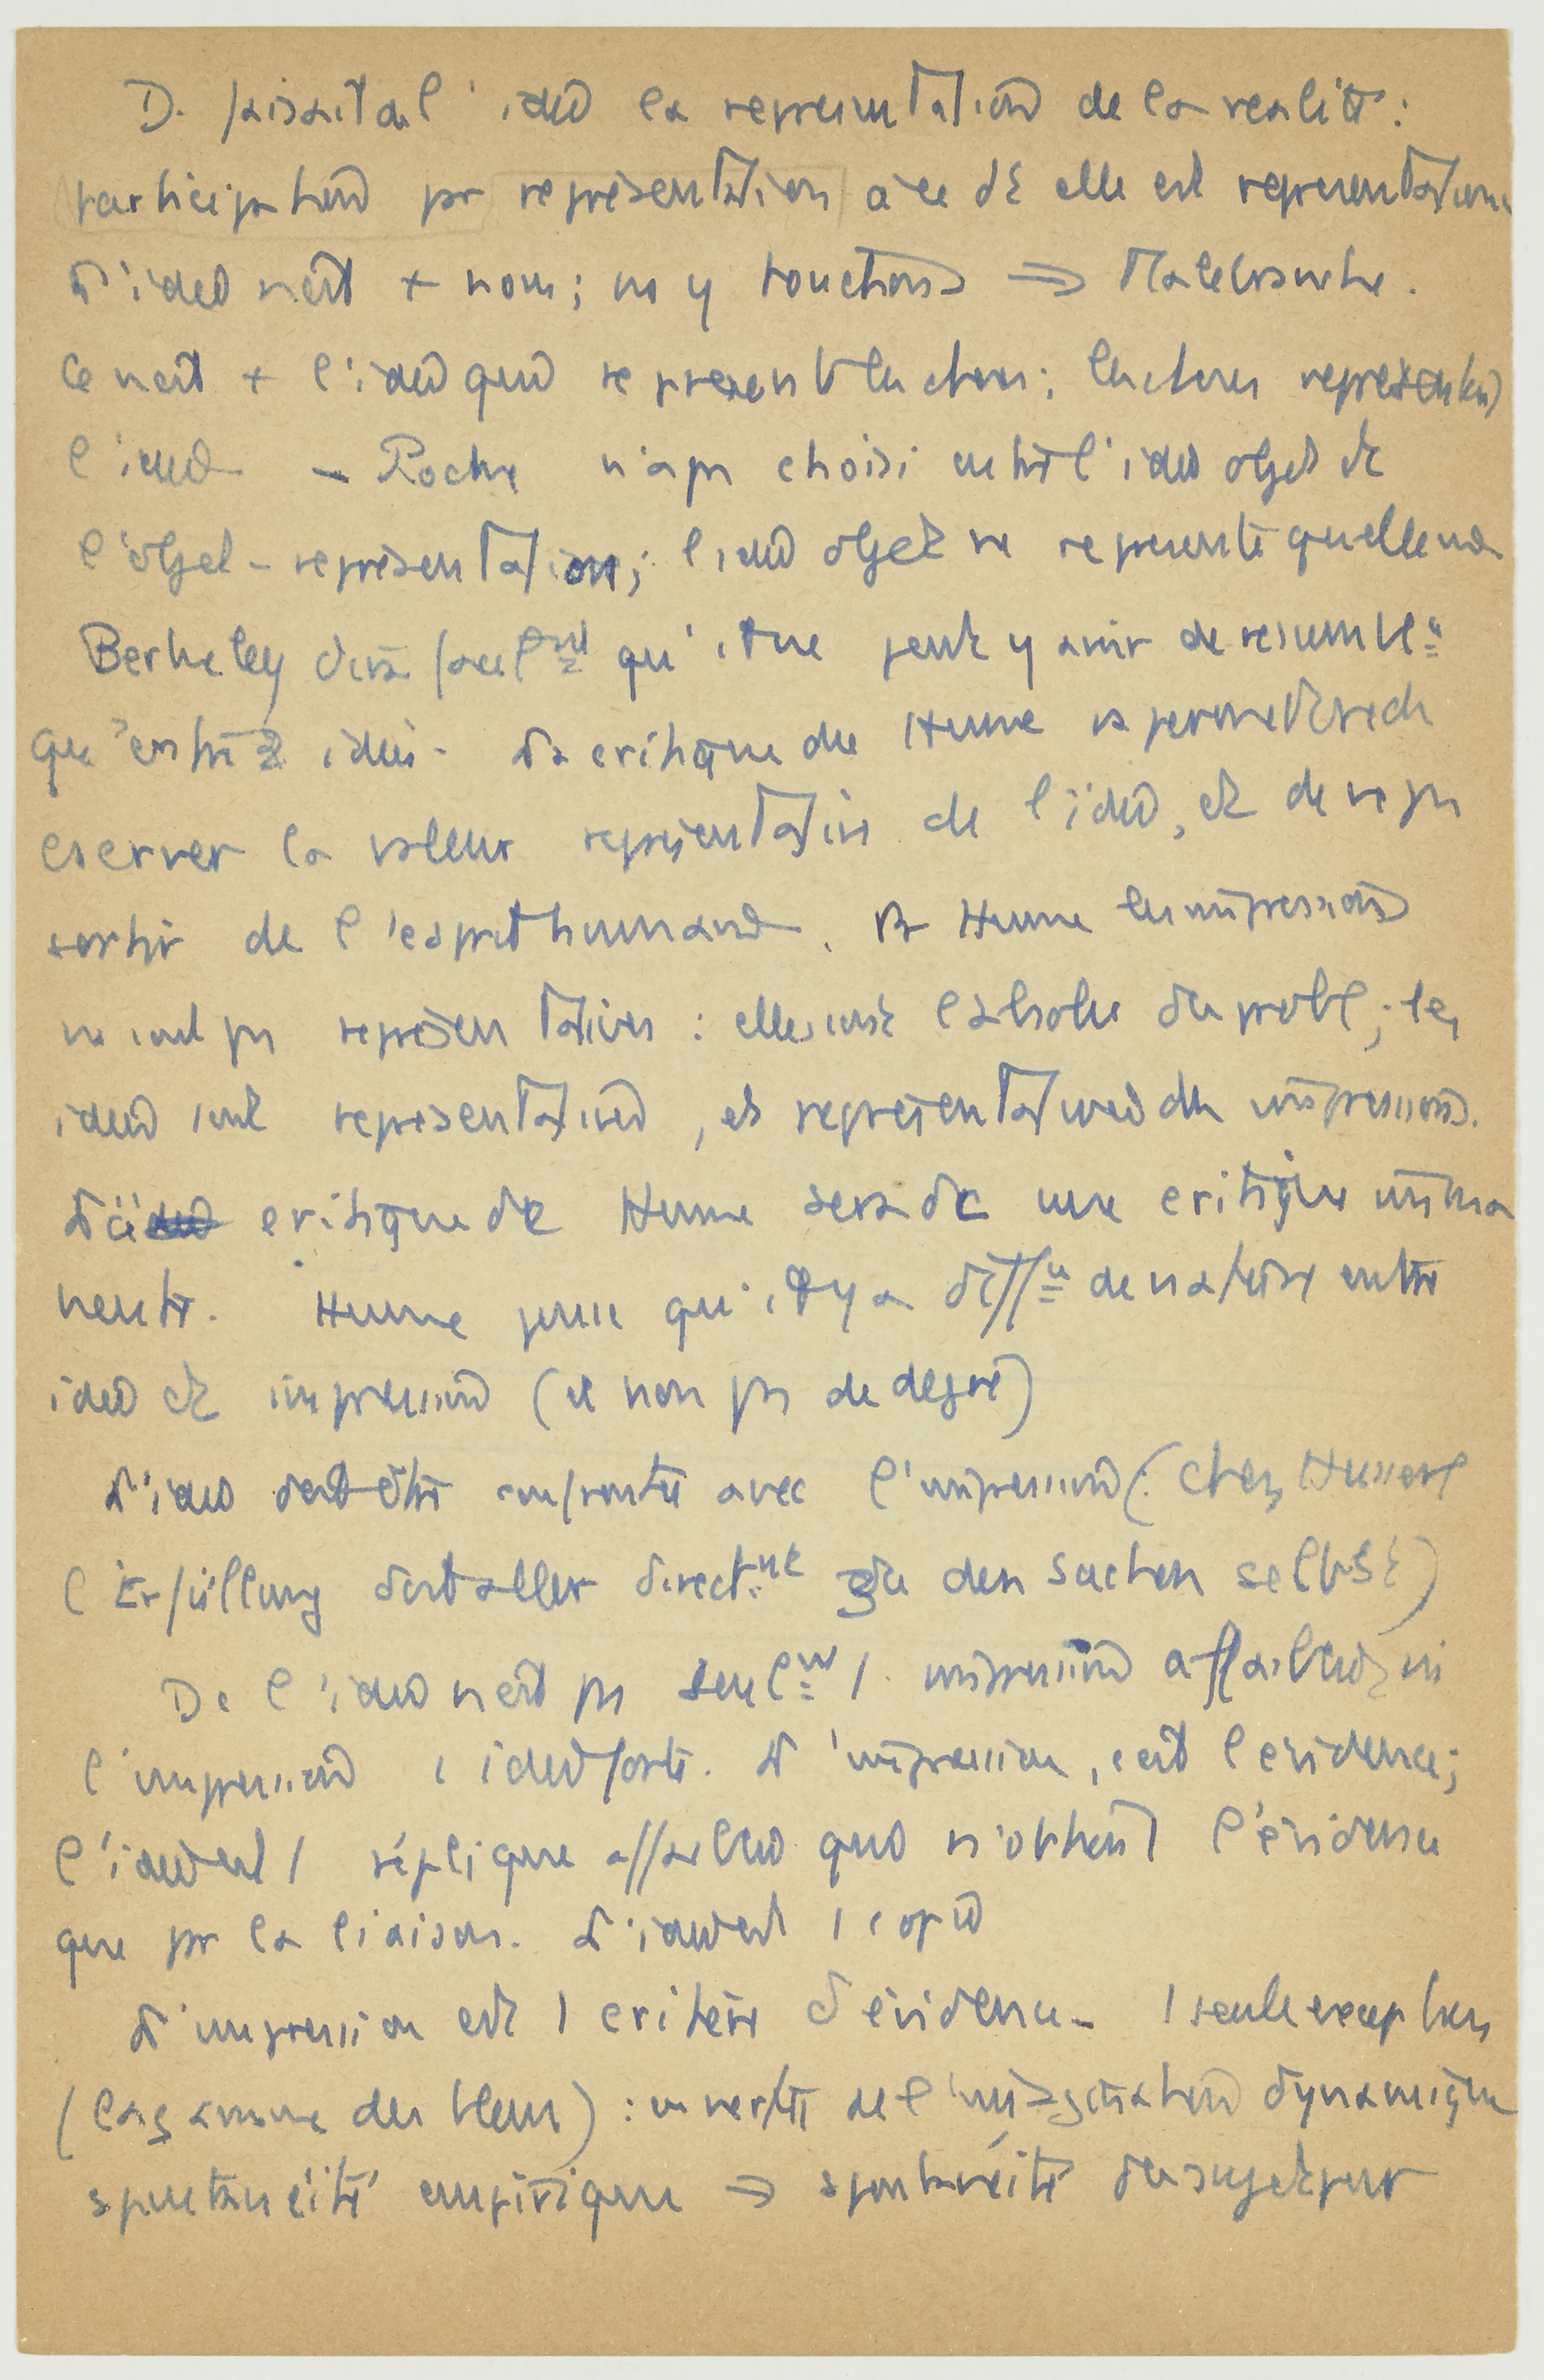 D. faisait de l'idée la représentation de la réalité :
participation par représentation à ce dt elle est représentation
L'idée n'est + nous ; ns y touchons ⇒ Malebranche.
Ce n'est + l'idée qui représente les choses ; les choses représentent
l'idée – Locke n'a pas choisi entre l'idée objet et
l'objet-représentation ; l'idée objet ne représente qu'elle même
Berkeley dira facilmt qu'il ne peut y avoir de ressemblce
qu'entre 2 idées. La critique de Hume va permettre de
conserver la valeur représentative de l'idée, et de ne pas
sortir de l'esprit humain. Pr Hume les impressions
ne sont pas représentatives : elles sont l'absolu du probl ; les
idées sont représentatives, et représentatives des impressions.
La critique de Hume sera dc une critique imma
nente. Hume pense qu'il y a diffce de nature entre
idée et impression (et non pas de degré)
L'idée doit être confrontée avec l'impression (chez Husserl
l'Erfüllung doit aller directmt zu den Sachen selbst)
Dc l'idée n'est pas seulmt 1 impression affaiblie, ni
l'impression 1 idée forte. L'impression, c'est l'évidence ;
l'idée est 1 réplique affaiblie qui n'obtient l'évidence
que par la liaison. L'idée est 1 copie
L'impression est 1 critère d'évidence – 1 seule exception
(la gamme des bleus) : en vertu de l'imagination dynamique
spontanéité empirique → spontanéité du sujet pur